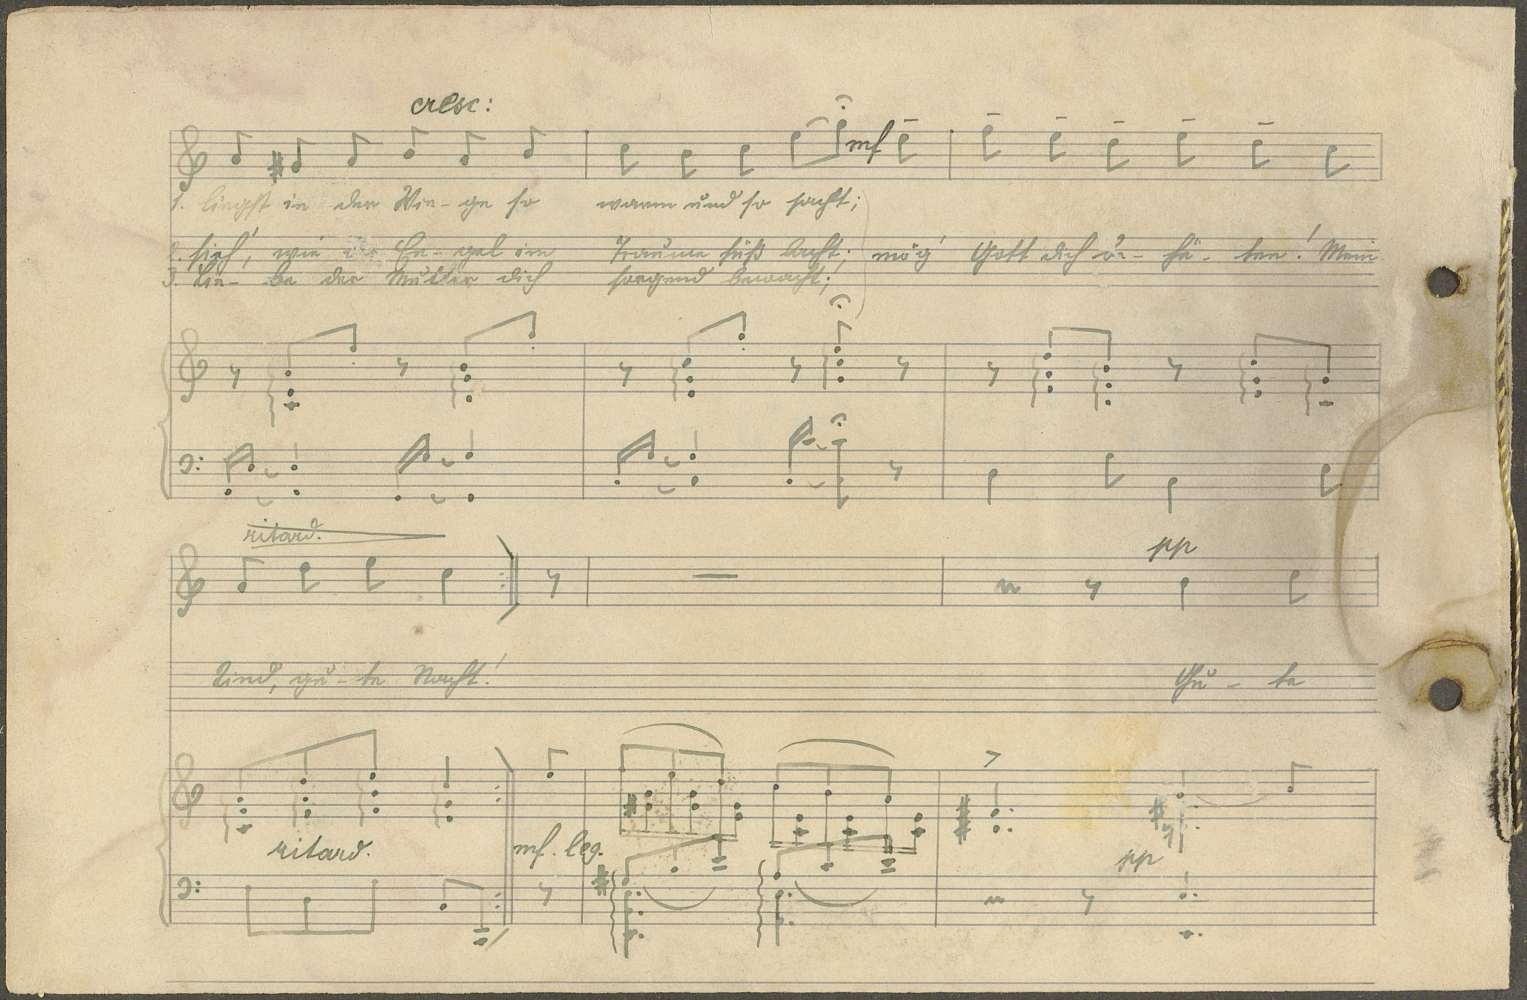 cresc:
mf
1. liegst in der Wie- ge so warm und so sacht;
2. sieh', wie ein En- gel im Traume süß lacht; mög' Gott dich be- hü- ten! Mein
3. Lie- be der Mutter dich sorgend bewacht;
ritard.
pp
Kind, gu- te Nacht! Gu- te
ritard. mf. leg. pp